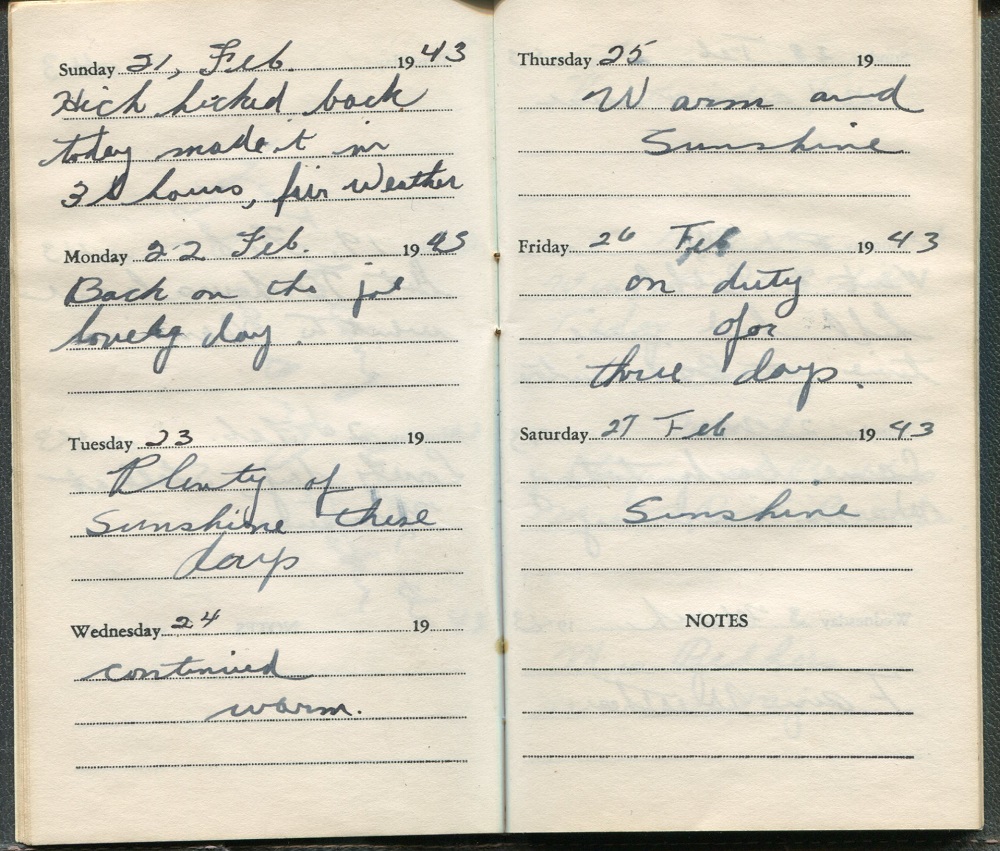 Sunday 21, Feb. 1943
Hich hicked back
today made it in
3 hours, fair Weather
Monday 22 Feb. 1943
Back on the
lovely day.
Tuesday 23 19
Plenty of
Sunshine these
days
Wednesday 24 19
continued
warm.
Thursday 25 19
Warm and
Sunshine
Friday 26 Feb 1943
on duty
for
three days.
Saturday 27 Feb 1943
Sunshine
NOTES